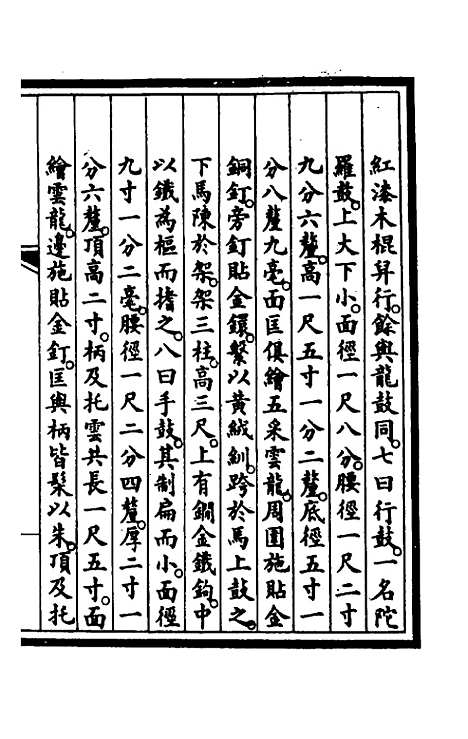 紅漆木棍舁行。餘與龍鼓同。七曰行鼓。一名陀
羅鼓。上大下小。面徑一尺八分。腰徑一尺二寸
九分六釐。高一尺五寸一分二釐。底徑五寸一
分八釐九毫。面匡俱繪五采雲龍。周圍施貼金
銅釘。旁釘貼金鐶。繫以黃絨紃。跨於馬上鼓之。
下馬陳於架。架三柱。高三尺。上有鍍金鐵鉤。中
以鐵為樞而搘之。八曰手鼓。其制扁而小。面徑
九寸一分二毫。腰徑一尺二分四釐。厚二寸一
分六釐。頂高二寸。柄及托雲共長一尺五寸。面
繪雲龍。邊施貼金釘。匡與柄皆髹以朱。頂及托